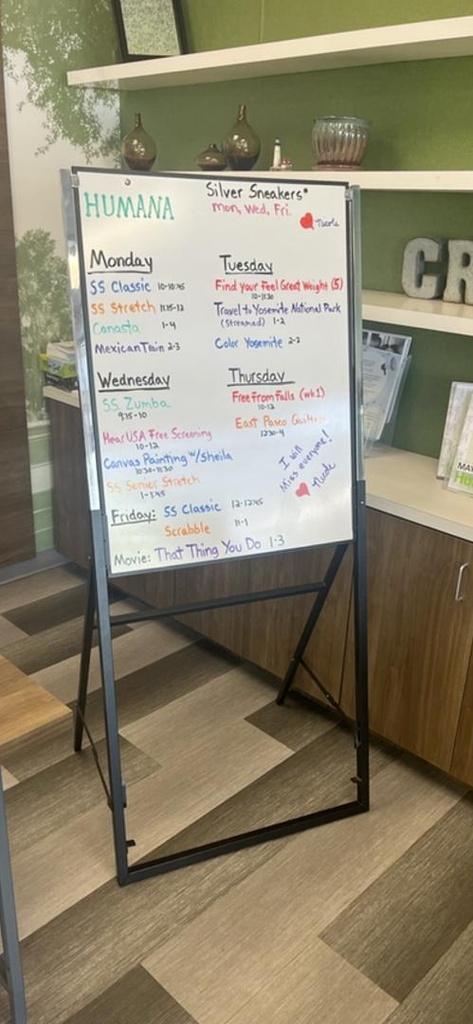 HUMANA
Silver Sneakers®
Mon, Wed, Fri.
Nicole
Monday
SS Classic 10-10:45
SS Stretch 11:15-12
Canasta 1-4
Mexican Train 2-3
Tuesday
Find Your Feel Great Weight (5)
10-11:30
Travel to Yosemite National Park
(Streamed) 1-2
Color Yosemite 2-3
Wednesday
SS Zumba
9:15-10
Hear USA Free Screening
10-12
Canvas Painting w/Sheila
10:30-11:30
SS Senior Stretch
1-1:45
Thursday
Free From Falls (wk1)
10-12
East Pasco
12:30-4
I will
Miss everyone!
Nicole
Friday: SS Classic 12-12:45
Scrabble 11-1
Movie: That Thing You Do 1-3
CR